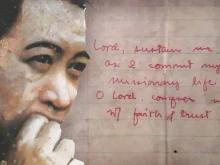 Lord, sustain me
as I commit my
missionary life
O Lord, conquer m
w/ faith & trust